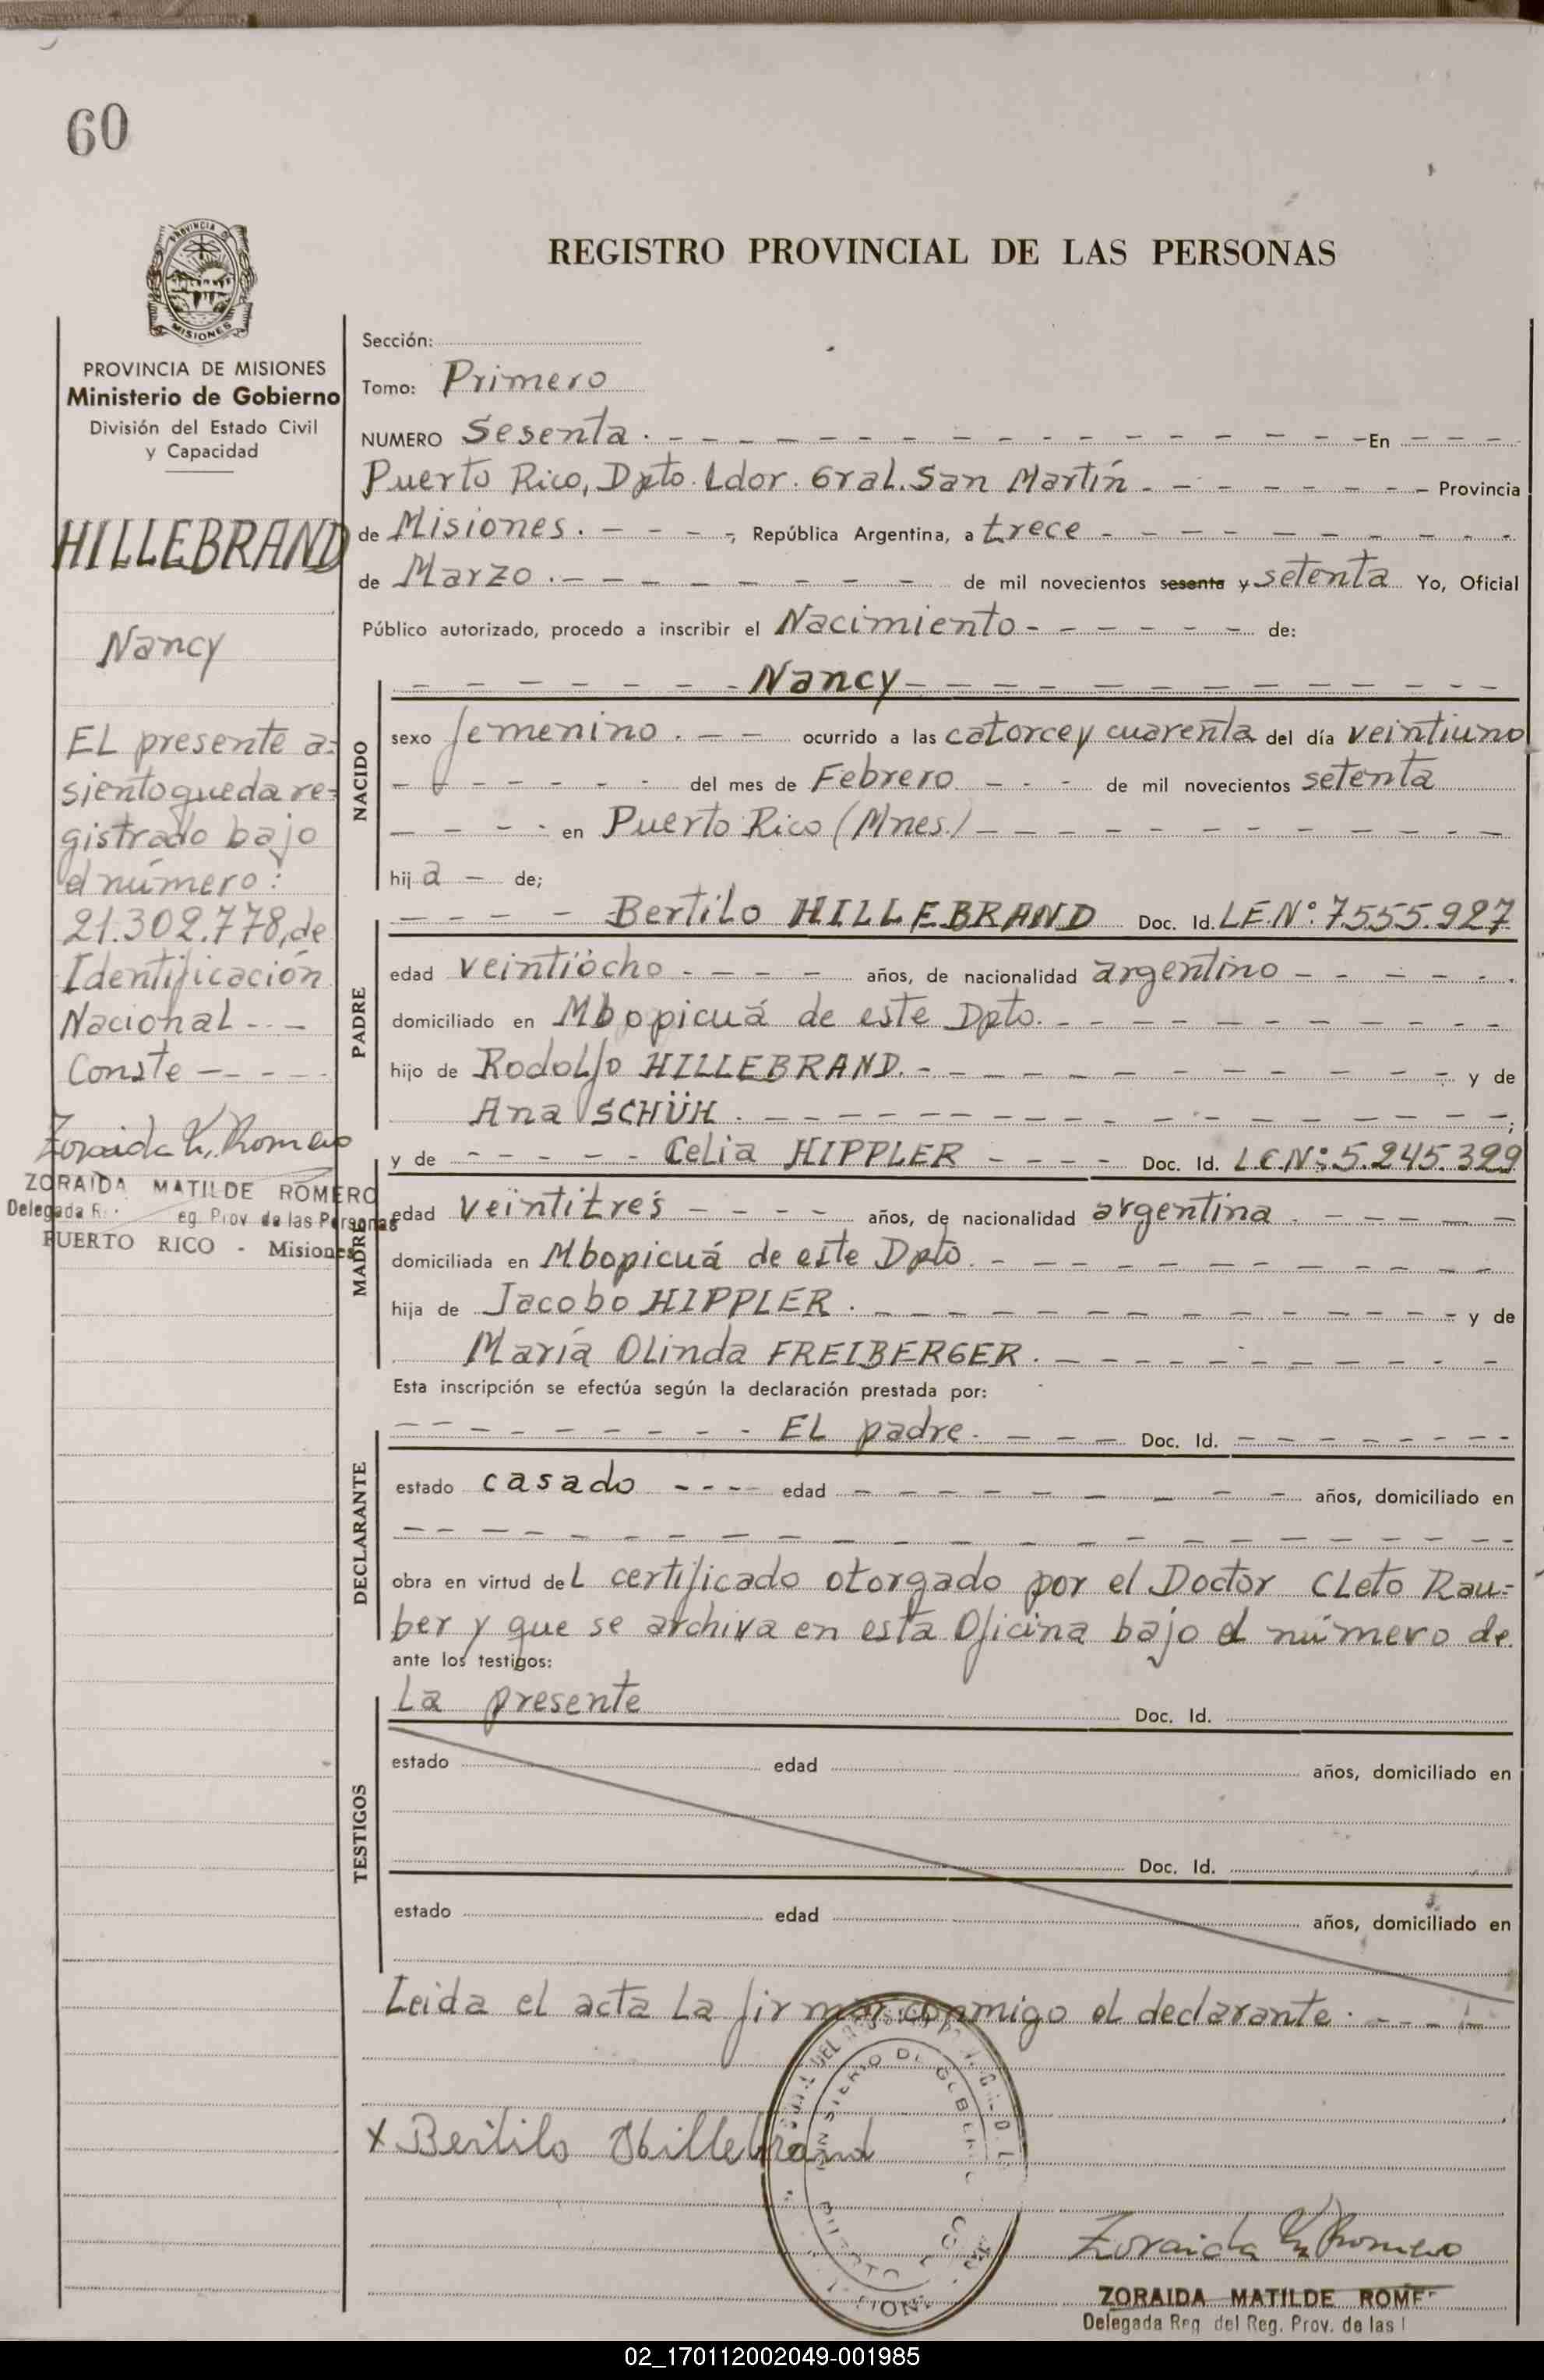 60
REGISTRO PROVINCIAL DE LAS PERSONAS
PROVINCIA DE MISIONES
Ministerio de Gobierno
División del Estado Civil
y Capacidad
HILLEBRAND
Nancy
EL presente a-
siento queda re-
gistrado bajo
el número:
21.302.778, de
Identificación
Nacional - - -
Conste - - - -
Zoraida M. Romero
ZORAIDA MATILDE ROMERO
Delegada R. eg. Prov de las Personas
PUERTO RICO - Misiones
Sección:
Tomo: Primero
NUMERO Sesenta. - - - En - - -
Puerto Rico, Dpto. Ldor. Gral. San Martín - - - Provincia
de Misiones. - - -, República Argentina, a trece - - -
de Marzo. - - - de mil novecientos sesenta y setenta Yo, Oficial
Público autorizado, procedo a inscribir el Nacimiento - - - de:
NACIDO
- - - Nancy - - -
sexo femenino. - - ocurrido a las catorce y cuarenta del día veintiuno
- - - del mes de Febrero - - - de mil novecientos setenta
- - - en Puerto Rico (Mnes.) - - -
hija - de;
PADRE
- - - Bertilo HILLEBRAND Doc. Id. L.E.Nº: 7.555.927
edad veintiocho - - - años, de nacionalidad argentino - - -
domiciliado en Mbopicuá de este Dpto. - - -
hijo de Rodolfo HILLEBRAND. - - - y de
Ana SCHÜH. - - - ;
MADRE
y de - - - Celia HIPPLER - - - Doc. Id. L.C.Nº: 5.245.329
edad veintitres - - - años, de nacionalidad argentina. - - -
domiciliada en Mbopicuá de este Dpto. - - -
hija de Jacobo HIPPLER. - - - y de
María Olinda FREIBERGER. - - -
Esta inscripción se efectúa según la declaración prestada por:
DECLARANTE
- - - EL padre. - - - Doc. Id. - - -
estado casado - - - edad - - - años, domiciliado en
- - -
obra en virtud deL certificado otorgado por el Doctor CLeto Rau=
ber y que se archiva en esta Oficina bajo el número de
ante los testigos:
La presente Doc. Id.
TESTIGOS
estado edad años, domiciliado en
Doc. Id.
estado edad años, domiciliado en
Leida el acta La firman conmigo el declarante. - - -
x Bertilo Hillebrand
Zoraida M. Romero
ZORAIDA MATILDE ROME
Delegada Reg del Reg. Prov. de las
02_170112002049-001985